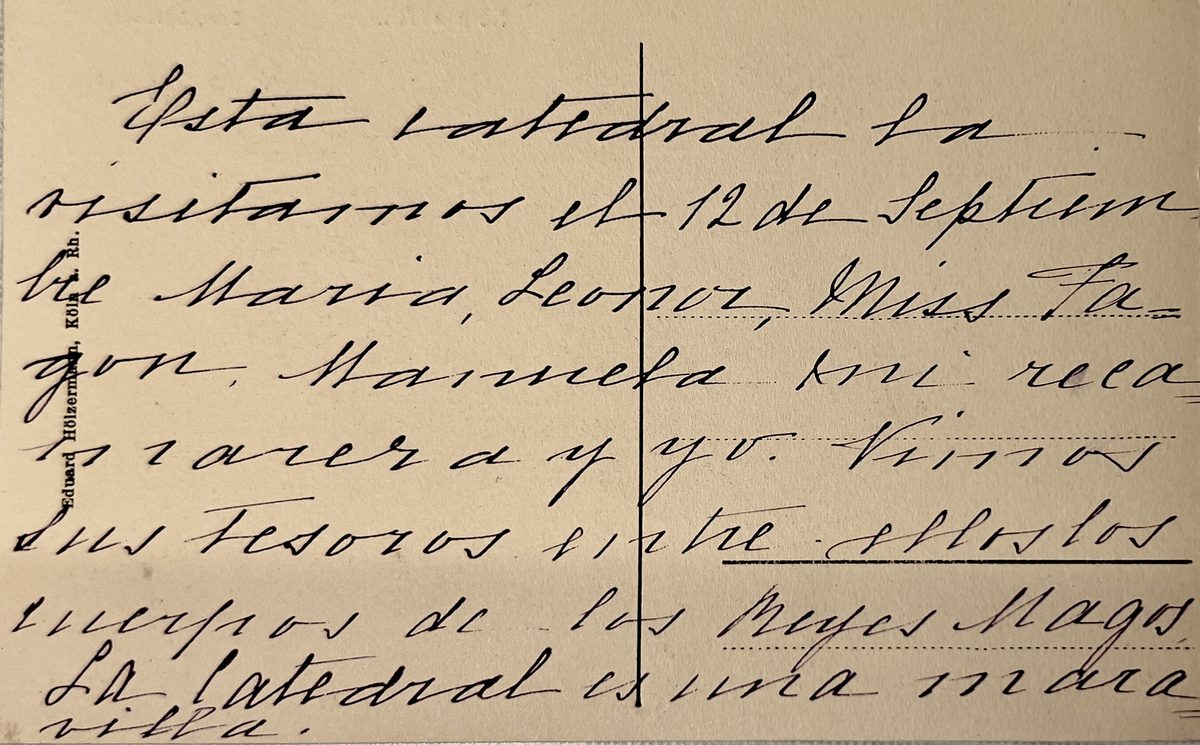 Esta catedral la
visitamos el 12 de Septiem
bre Maria, Leonor, Miss Fa=
gon, Manuela mi reca=
marera y yo. Vimos
sus tesoros entre ellos los
cuerpos de los Reyes Magos.
La Catedral es una mara=
villa.
Eduard Hölzermann, Köln a. Rh.